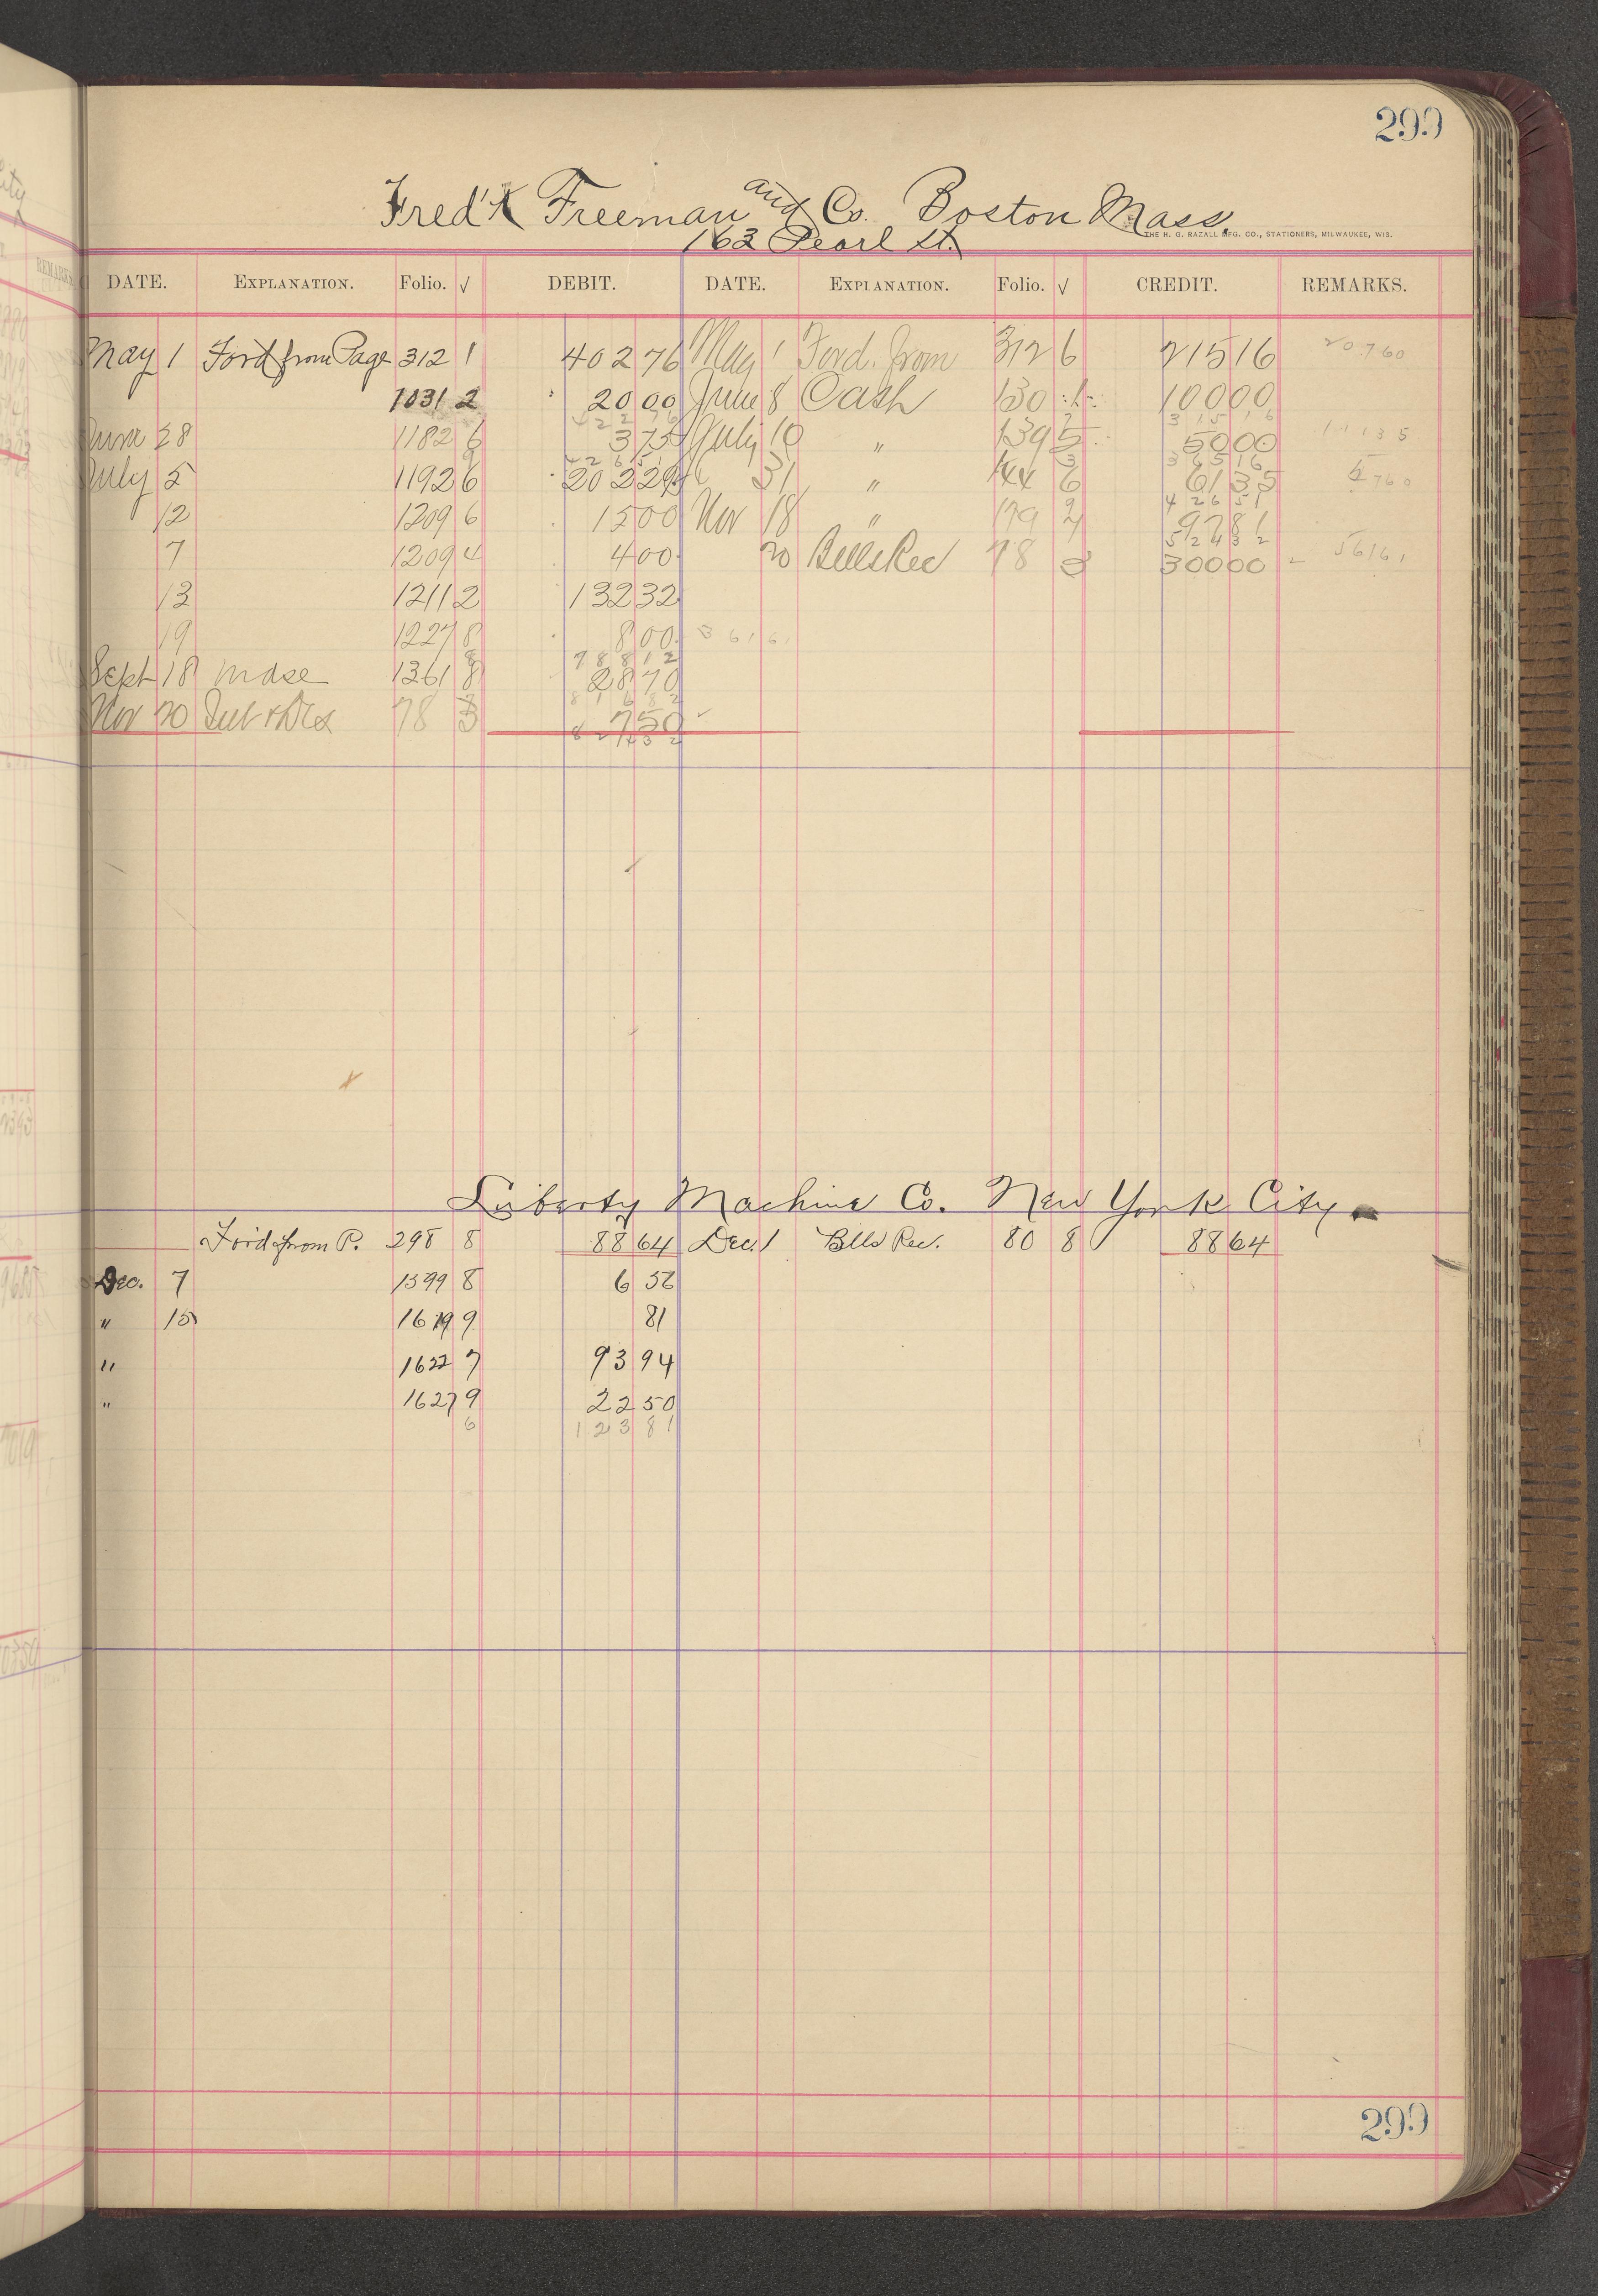 299
Fred'k Freeman and Co. Boston Mass.
163 Pearl St.
THE H. G. RAZALL MFG. CO., STATIONERS, MILWAUKEE, WIS.
DATE. EXPLANATION. Folio. √ DEBIT. DATE. EXPLANATION. Folio. √ CREDIT. REMARKS.
May 1 Ford from Page 312 1 402 76 May 1 Ford. from 312 6 215 16 20760
1031 2 20 00 June 8 Cash 130 1 100 00
422 76 315 16
June 28 1182 6 3 75 July 10 " 139 5 50 00 11135
426 51 365 16
July 5 1192 6 202 29 31 " 144 6 61 35 2760
426 51
12 1209 6 15 00 Nov 18 " 179 2 97 81
524 32
7 1209 4 4 00 20 Bills Rec 78 3 300 00 56161
13 1211 2 132 32
19 1227 8 8 00 36161
788 12
Sept 18 Mdse 1361 8 28 70
816 82
Nov 20 Int + 78 3 7 50
824 32
Liberty Machine Co. New York City
Ford from P. 298 8 88 64 Dec. 1 Blls Rec. 80 8 88 64
Dec. 7 1599 8 6 56
" 15 1619 9 81
" 1622 7 93 94
" 1627 9 22 50
6 123 81
299